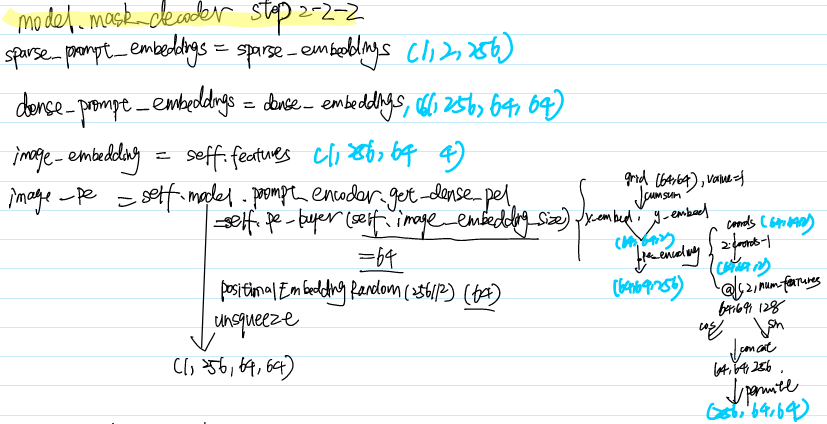 model.mask_decoder step 2-2-2
sparse_prompt_embeddings = sparse_embeddings (1, 2, 256)
dense_prompt_embeddings = dense_embeddings, (1, 256, 64, 64)
image_embedding = self.features (1, 256, 64 4)
image_pe = self.model.prompt_encoder.get_dense_pe(
=self.pe_layer(self.image_embedding_size)
=64
positionalEmbeddingRandom(256//2) (64)
unsqueeze
(1, 256, 64, 64)
grid (64,64), value=1
cumsum
x-embed, y-embed
(64,64,2)
pe_encoding
(64,64,256)
coords (64,64,2)
2·coords-1
(64,64,2)
@ 2, num-features
64,64, 128
cos sin
concat
64,64,256.
permute
(256, 64, 64)